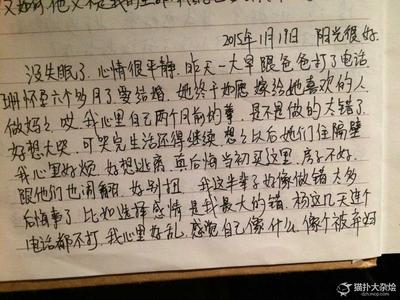 2015年1月17日 阳光很好.
没失眠了.心情很平静.昨天一大早跟爸爸打了电话
珊怀孕六个多月了.要结婚.她终于如愿嫁给她喜欢的人
做妈了.哎.我心里自己两个月前的事.是不是做的太错了.
好想大哭.可哭完生活还得继续.想了以后她们住隔壁
我心里好烦.好想逃离.真后悔当初买这里.房子不好.
跟他们也闹翻.好别扭.我这半辈子好像做错太多
后悔事了.比如选择感情是我最大的错.杨这几天连个
电话都不打.我心里好乱.感觉自己像什么.像个被弃妇
猫扑大杂烩
dzh.mop.com